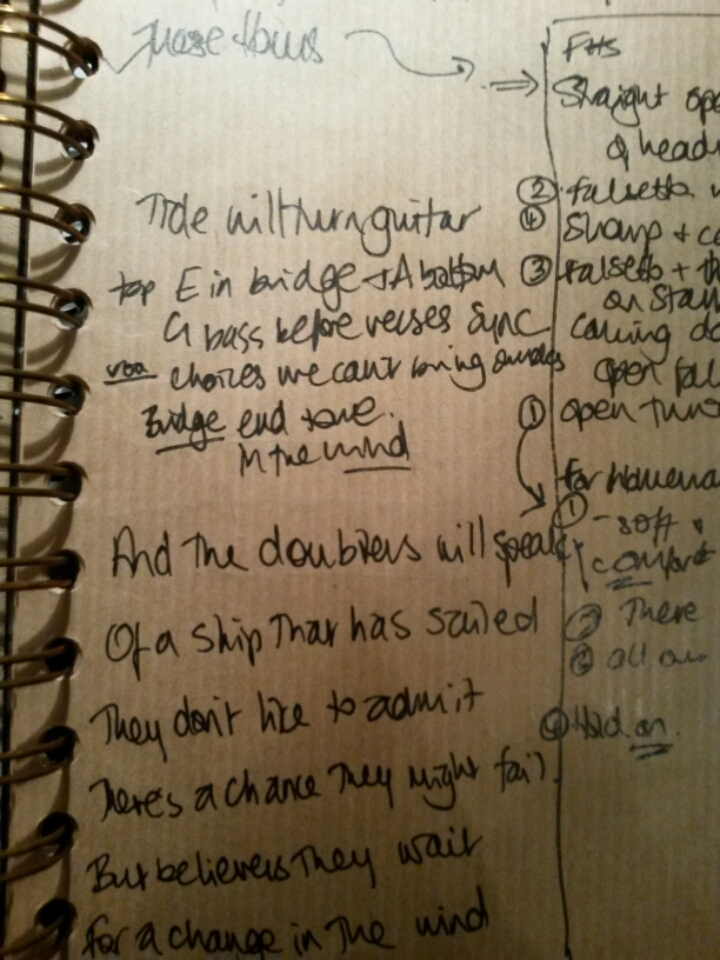 Tide will turn guitar
top E in bridge + A bottom
G bass before verses sync
vox choices we can't bring
Bridge end tone.
In the wind
And the doubters will speak
Of a ship that has sailed
They don't like to admit
There's a chance they might fail.
But believers they wait
For a change in the wind
FHS
Straight
of head
② falsetto
④ Sharp +
③ Falsetto +
on
coming
open
① open
for
① - soft
comfort
There
all
④ Hold on.